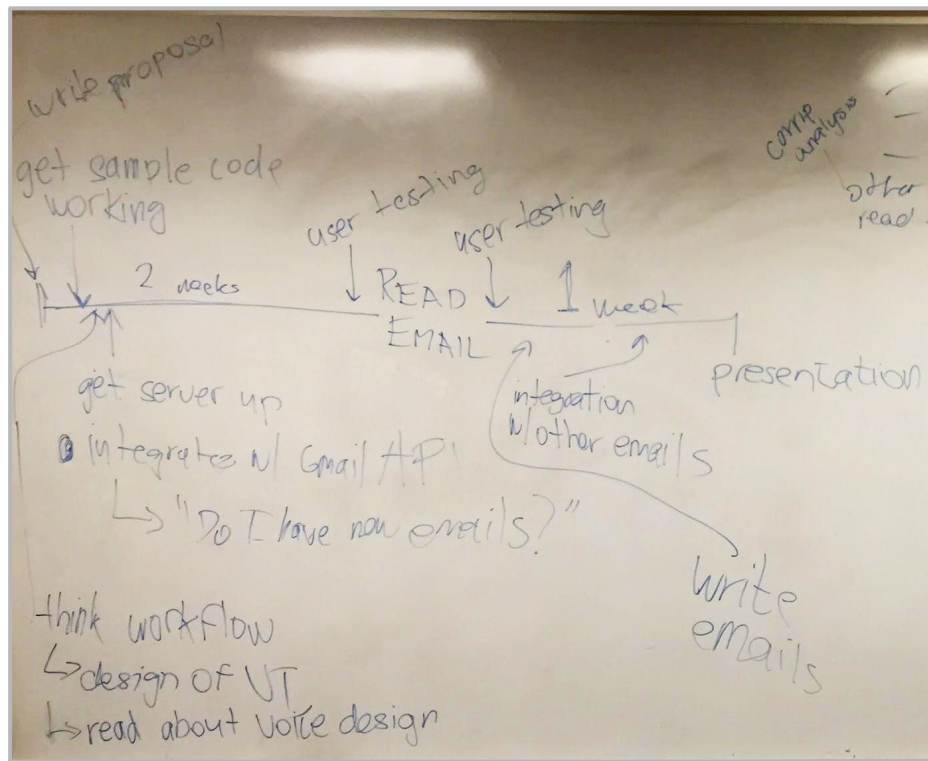 write proposal
get sample code
working
user testing
user testing
comp
analysis
other
read
2 weeks
READ
EMAIL
1 week
presentation
get server up
integrates w/ Gmail API
↳ "Do I have new emails?"
integration
w/other emails
write
emails
think workflow
↳ design of VI
↳ read about voice design